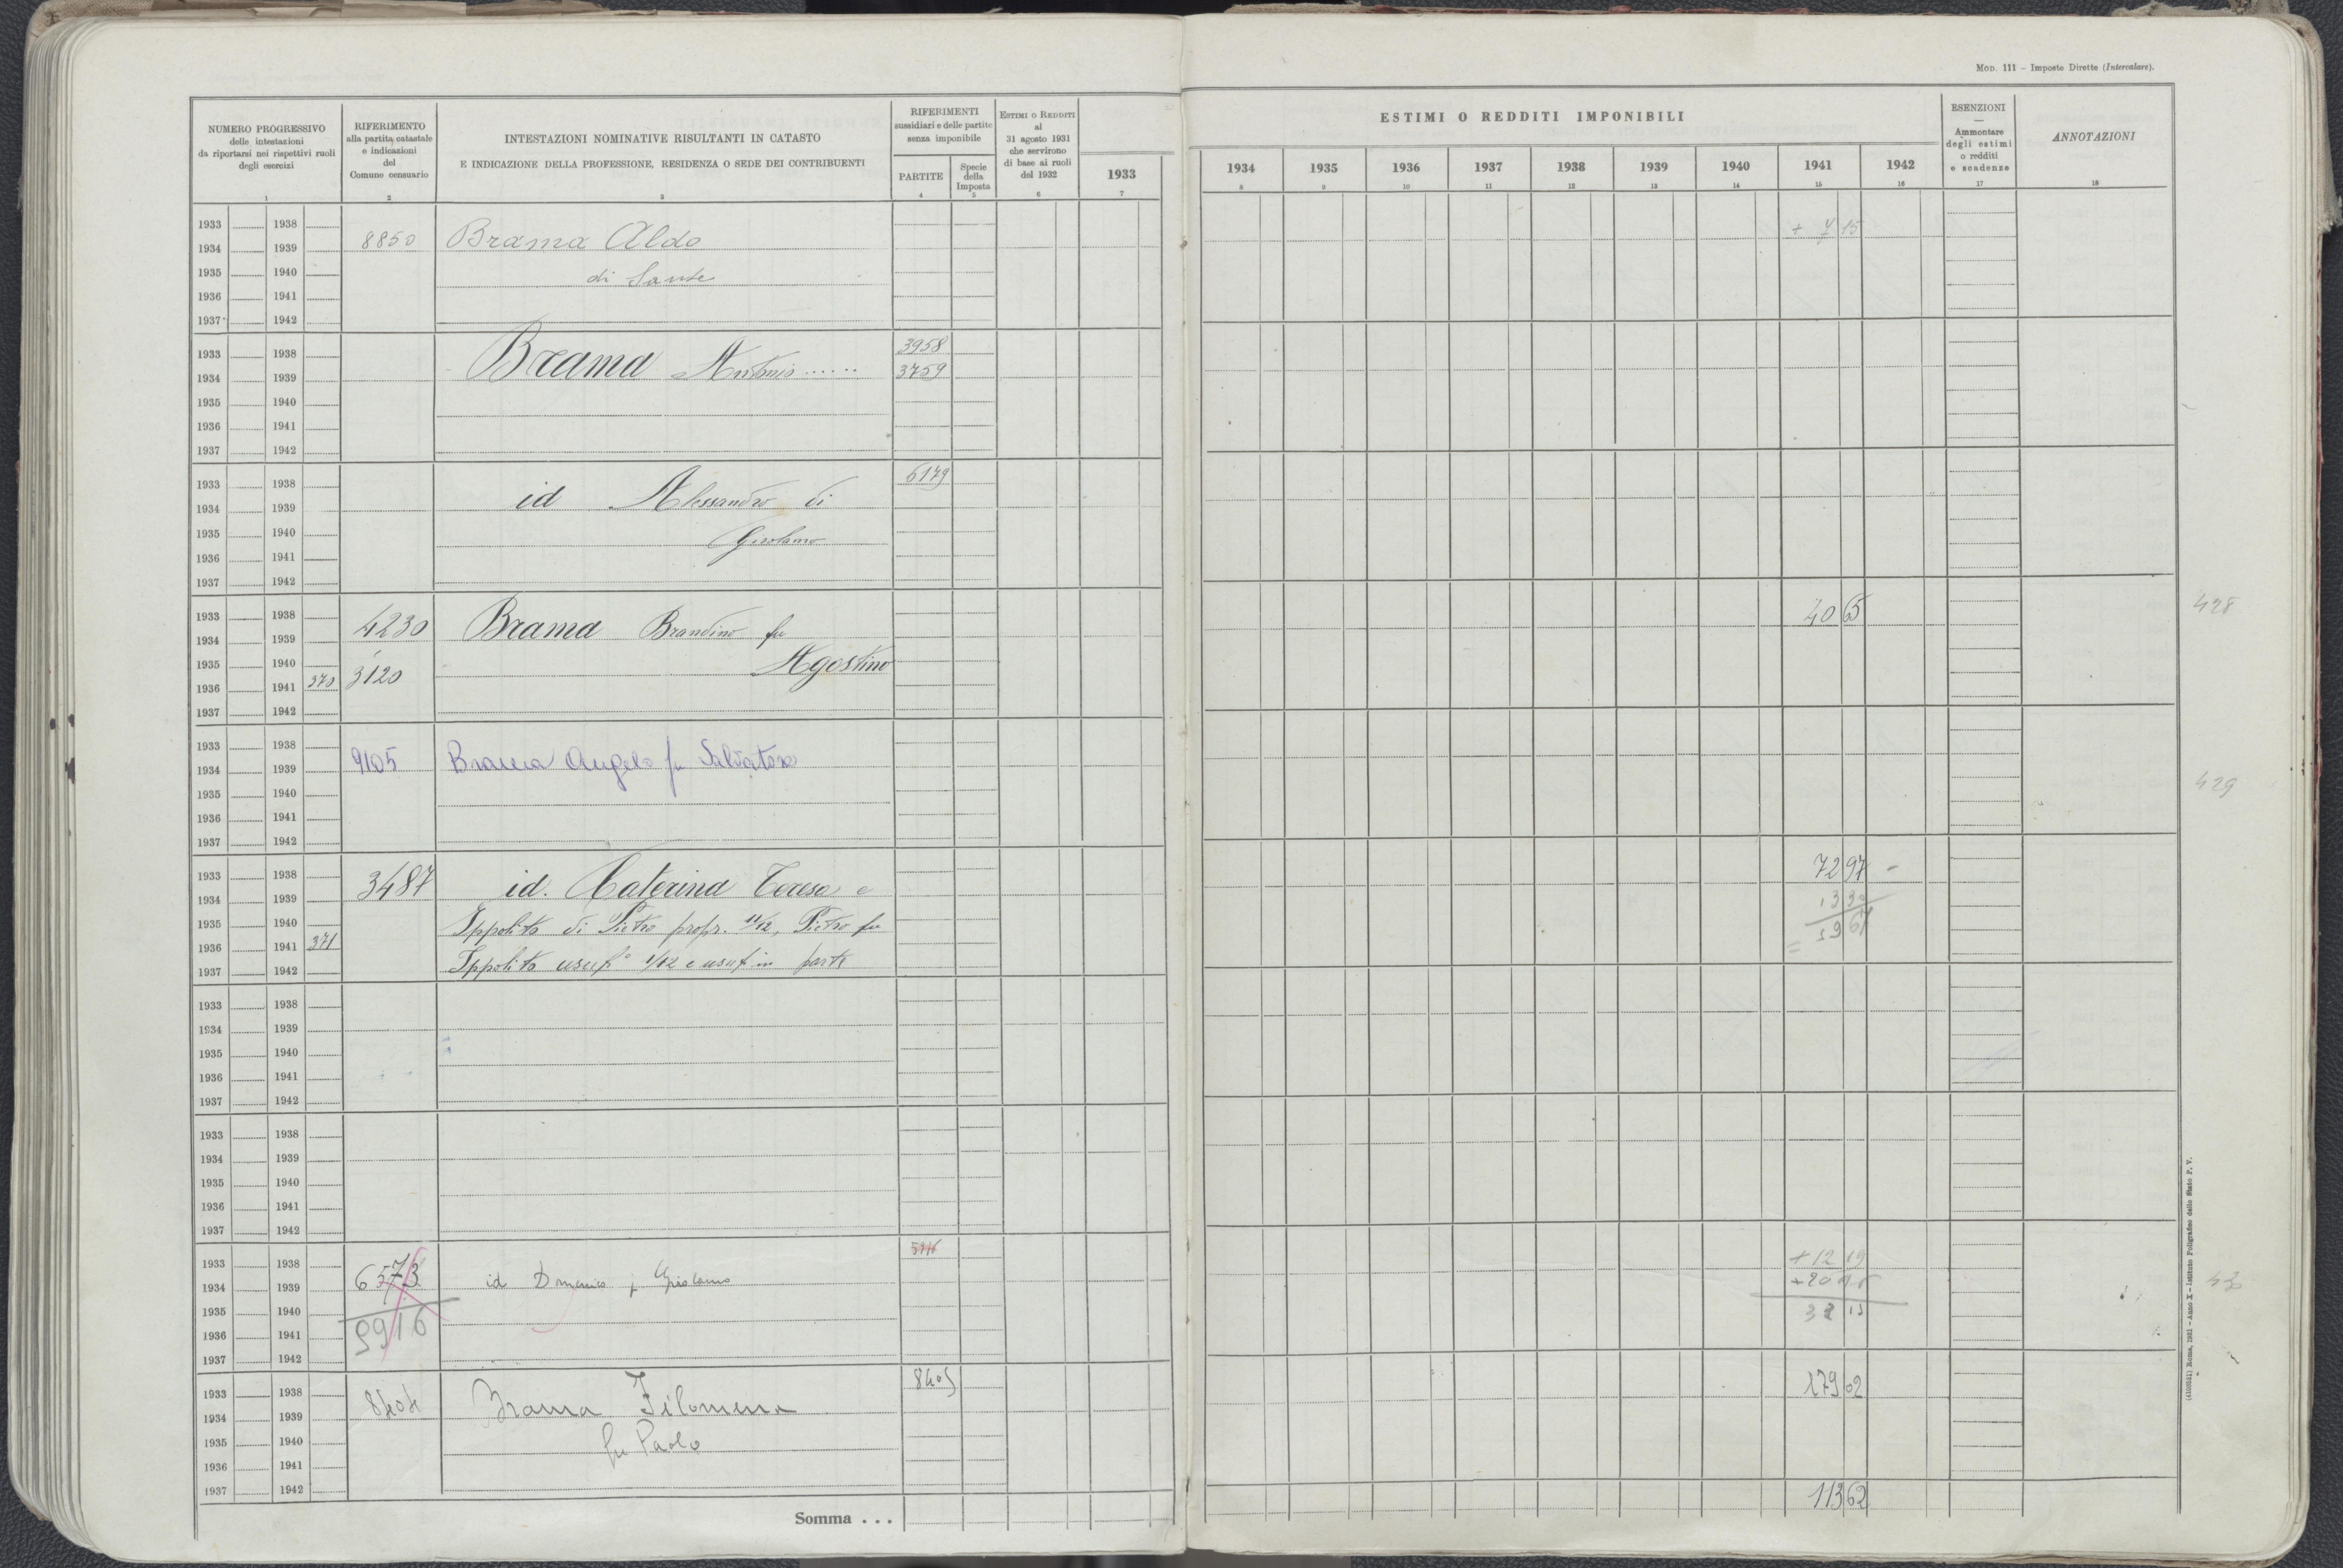 Mod. 111 – Imposte Dirette (Intercalare).
NUMERO PROGRESSIVO
delle intestazioni
da riportarsi nei rispettivi ruoli
degli esercizi
1
RIFERIMENTO
alla partita catastale
e indicazioni
del
Comune censuario
2
INTESTAZIONI NOMINATIVE RISULTANTI IN CATASTO
E INDICAZIONE DELLA PROFESSIONE, RESIDENZA O SEDE DEI CONTRIBUENTI
3
RIFERIMENTI
sussidiari e delle partite
senza imponibile
PARTITE
4
Specie
della
Imposta
5
Estimi o Redditi
al
31 agosto 1931
che servirono
di base ai ruoli
del 1932
6
1933
7
ESTIMI O REDDITI IMPONIBILI
1934 1935 1936 1937 1938 1939 1940 1941 1942
8 9 10 11 12 13 14 15 16
ESENZIONI
—
Ammontare
degli estimi
o redditi
e scadenze
17
ANNOTAZIONI
18
1933 1938
1934 1939 8850 Brama Aldo + 7 15
1935 1940 di Sante
1936 1941
1937 1942
1933 1938 3958
1934 1939 Brama Antonio ...... 3759
1935 1940
1936 1941
1937 1942
1933 1938 6179
1934 1939 id Alessandro di
1935 1940 Girolamo
1936 1941
1937 1942
1933 1938 4230 Brama Brandino fu 40 65 428
1934 1939
1935 1940 Agostino
1936 1941 370 3120
1937 1942
1933 1938
1934 1939 9105 Brama Angelo fu Salvatore 429
1935 1940
1936 1941
1937 1942
1933 1938 3487 id. Caterina Teresa e 72 97 -
1934 1939 13 30
1935 1940 Ippolito di Pietro propr. 11/12, Pietro fu
1936 1941 371 = 59 67
1937 1942 Ippolito usuf° 1/12 e usuf in parte
1933 1938
1934 1939
1935 1940
1936 1941
1937 1942
1933 1938
1934 1939
1935 1940
1936 1941
1937 1942
1933 1938 6573 + 12 19
1934 1939 id Domenico fu Girolamo
1935 1940
1936 1941 5916
1937 1942
1933 1938 8405 179 02
1934 1939 8404 Brama Filomena
1935 1940 fu Paolo
1936 1941
1937 1942
Somma . . . 113 62
(4100521) Roma, 1931 – Anno X – Istituto Poligrafico dello Stato P. V.